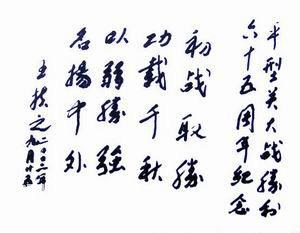 平型关大战胜利
六十五周年纪念
初战取胜
功载千秋
以弱胜强
名扬中外
王
二〇〇二年
九月十五